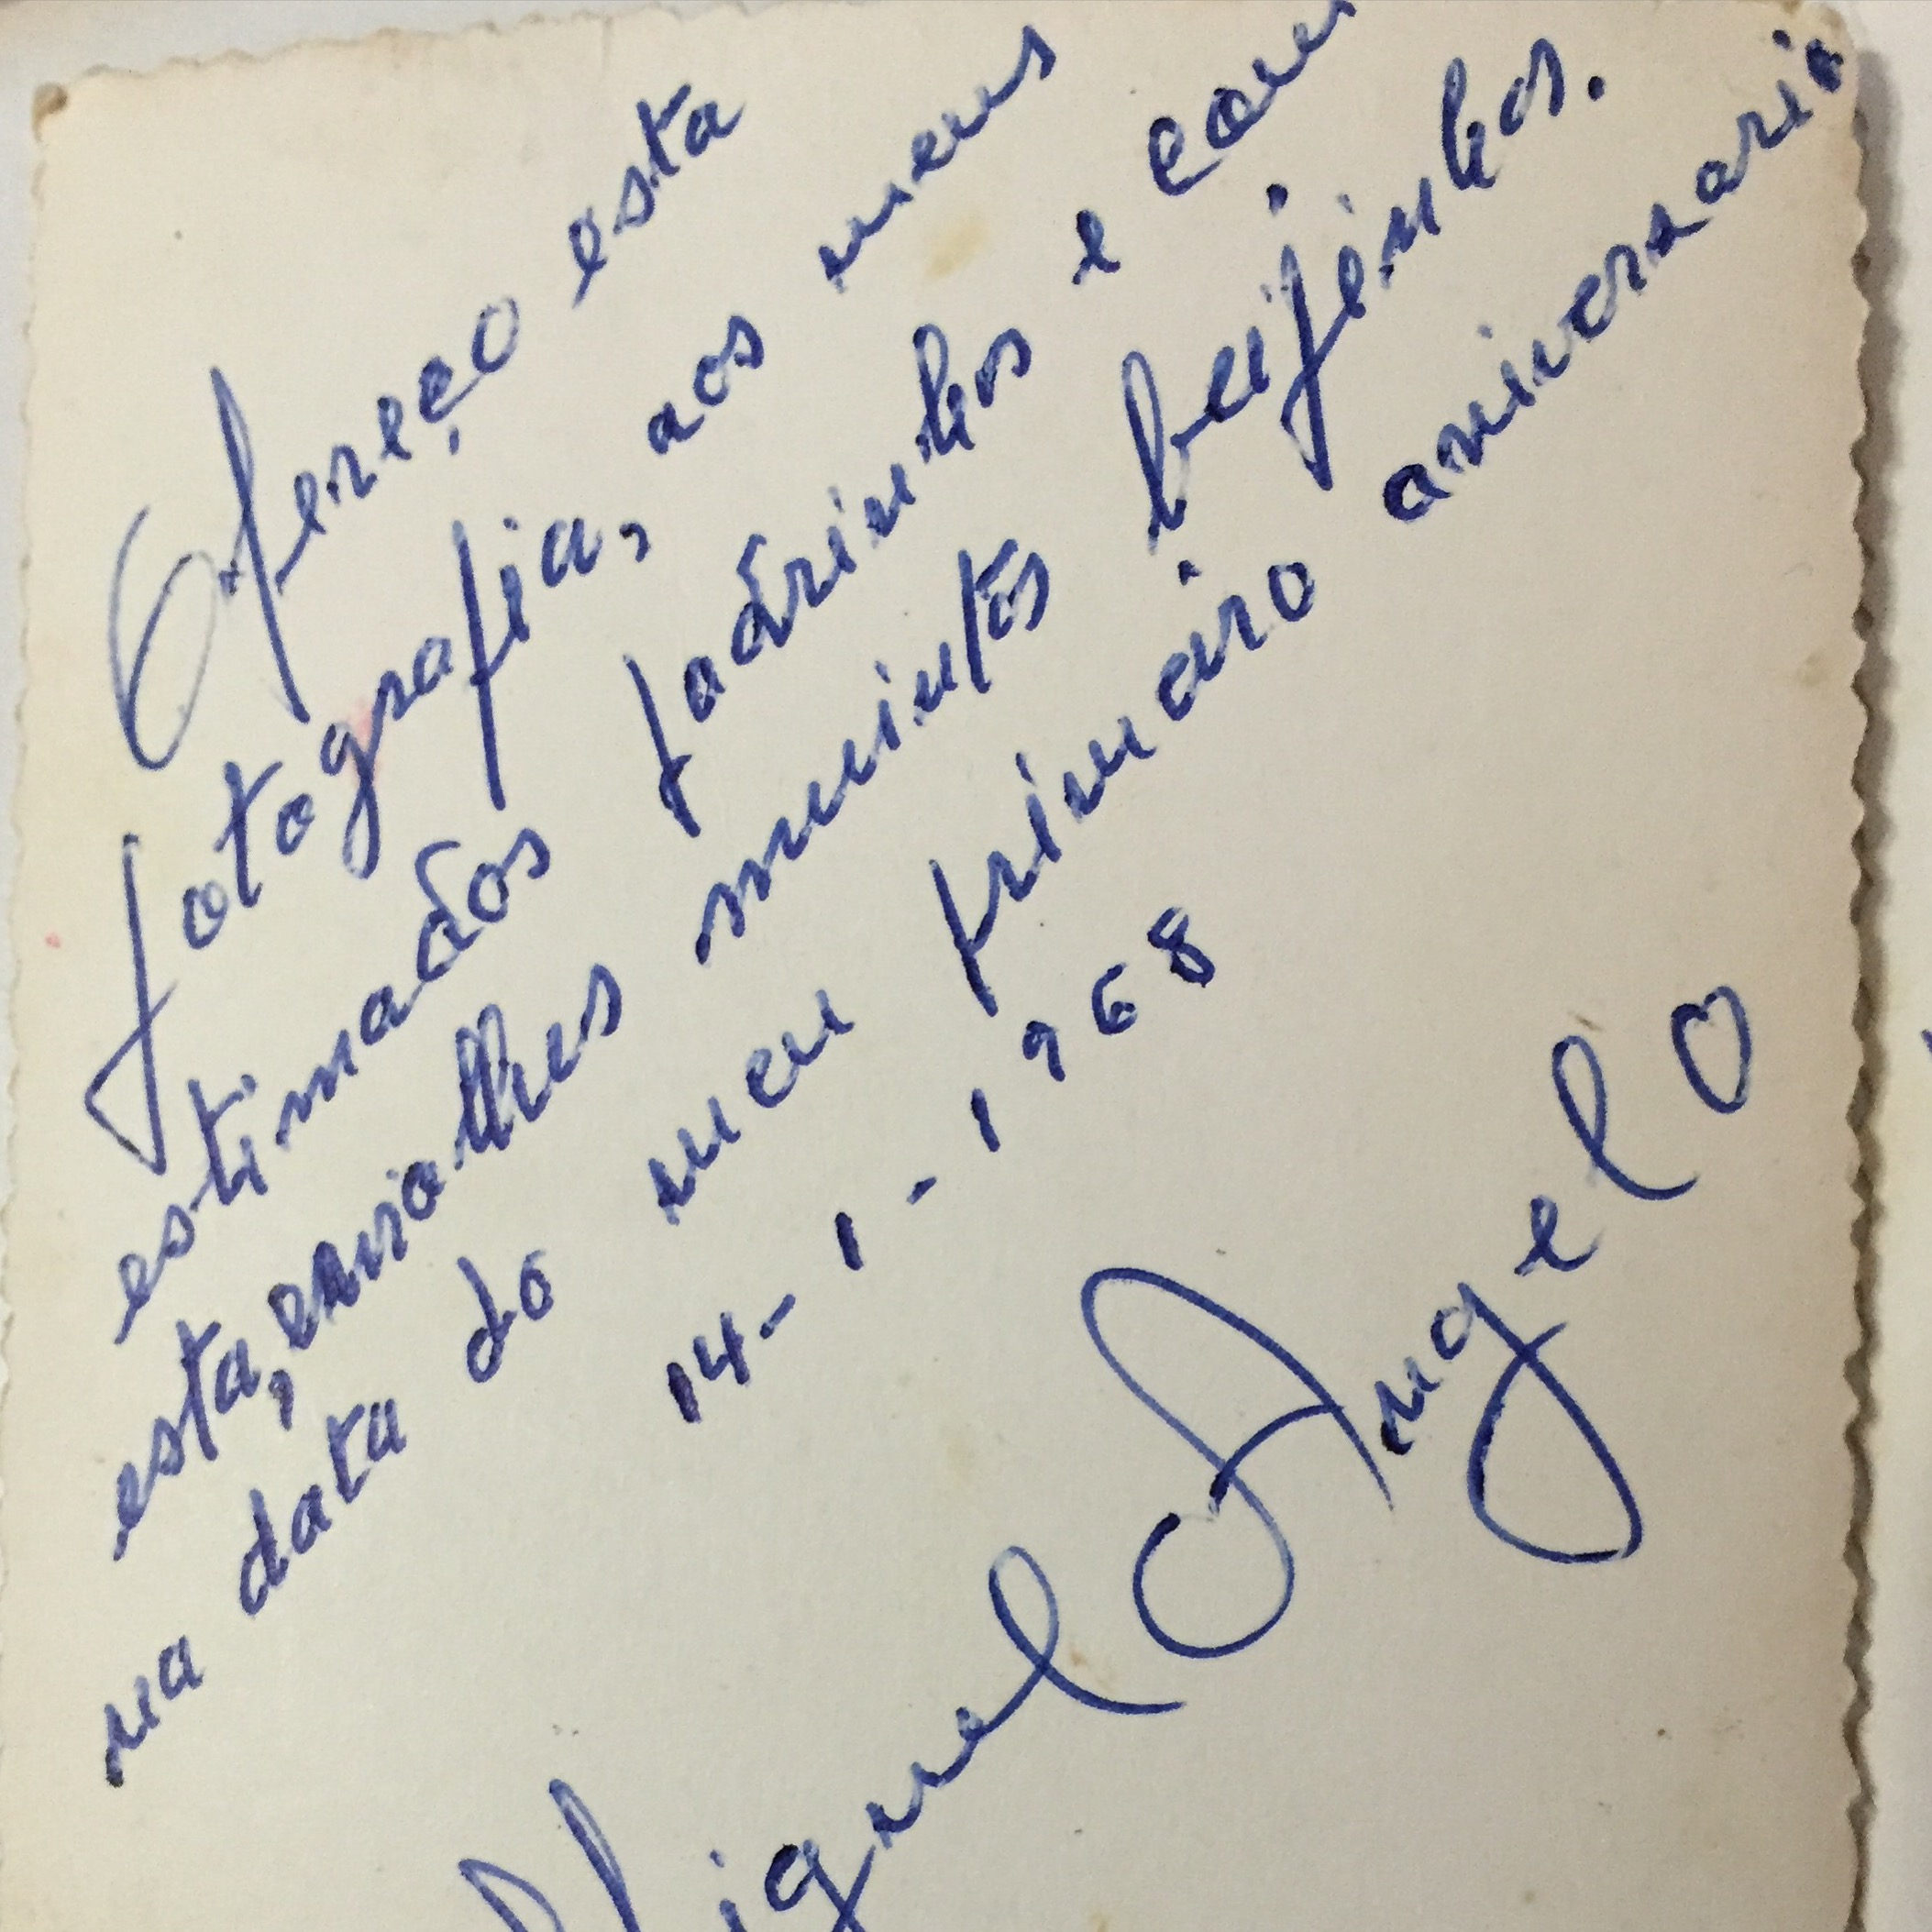 Ofereço esta
fotografia, aos meus
estimados padrinhos e com
esta, envio-lhes muintos beijinhos.
na data do meu primeiro aniversario
14-1-1968
Miguel Angelo